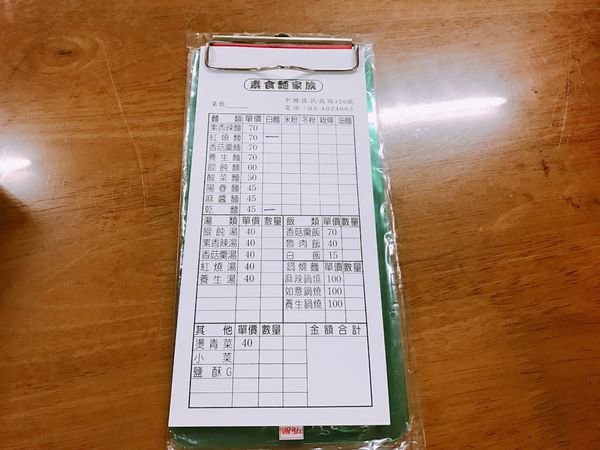 素食麵家族
桌號
中壢區民族路326號
電話:03 4024063
麵類 單價 白麵 米粉 冬粉 粄條 油麵
素香辣麵 70
紅燒麵 70
香菇羹麵 70
養生麵 70
餛飩麵 60
酸菜麵 50
陽春麵 45
麻醬麵 45
乾麵 45
湯類 單價 數量 飯類 單價 數量
餛飩湯 40 香菇羹飯 70
素香辣湯 40 魯肉飯 40
香菇羹湯 40 白飯 15
紅燒湯 40 鍋燒麵 單價 數量
養生湯 40 麻辣鍋燒 100
如意鍋燒 100
養生鍋燒 100
其他 單價 數量 金額合計
燙青菜 40
小菜
鹽酥G